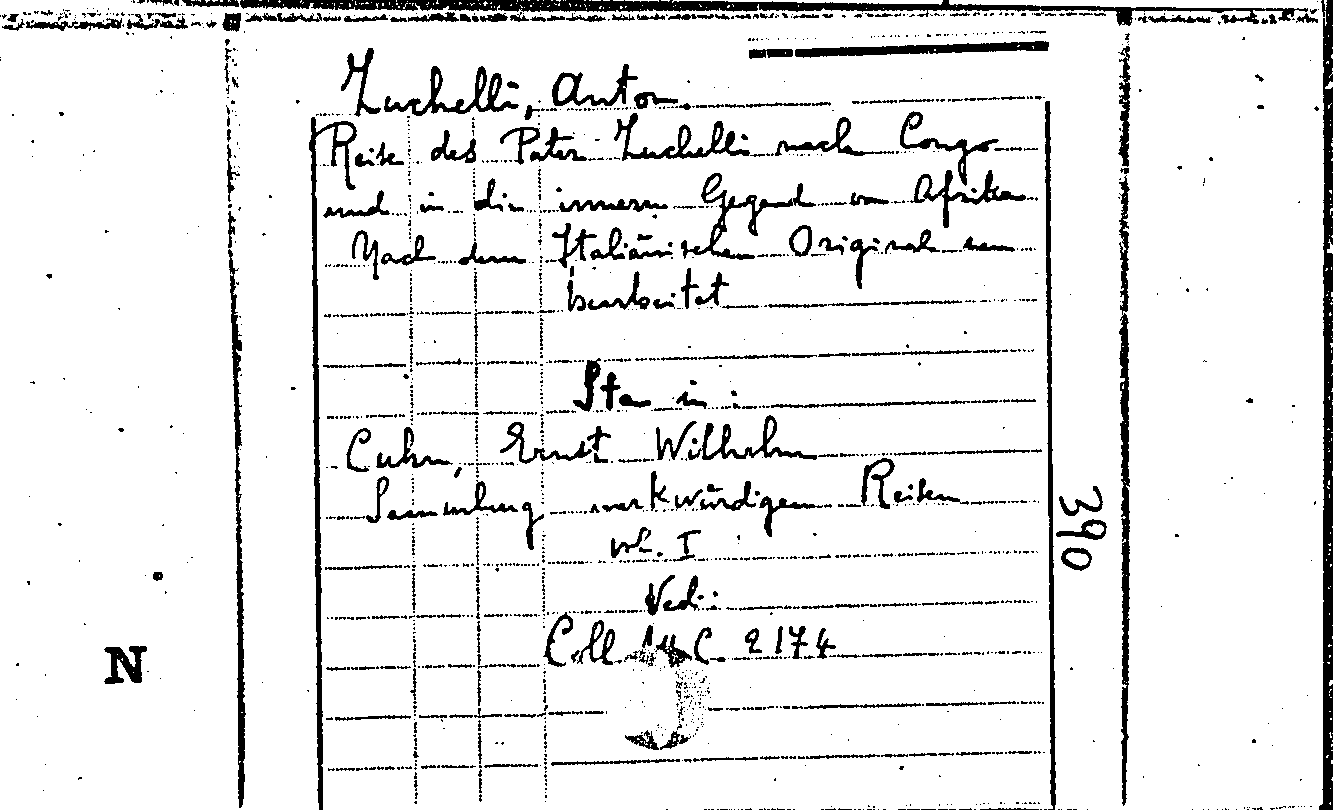 Zuchelli, Anton.
Reise des Pater Zuchelli nach Congo
und in die innern Gegend von Afrika
Nach dem Italiänischen Original neu
bearbeitet
Sta in:
Cuhn, Ernst Wilhelm
Sammlung merkwürdigen Reisen
vol. I
Vedi:
Coll C. 2174
390
N